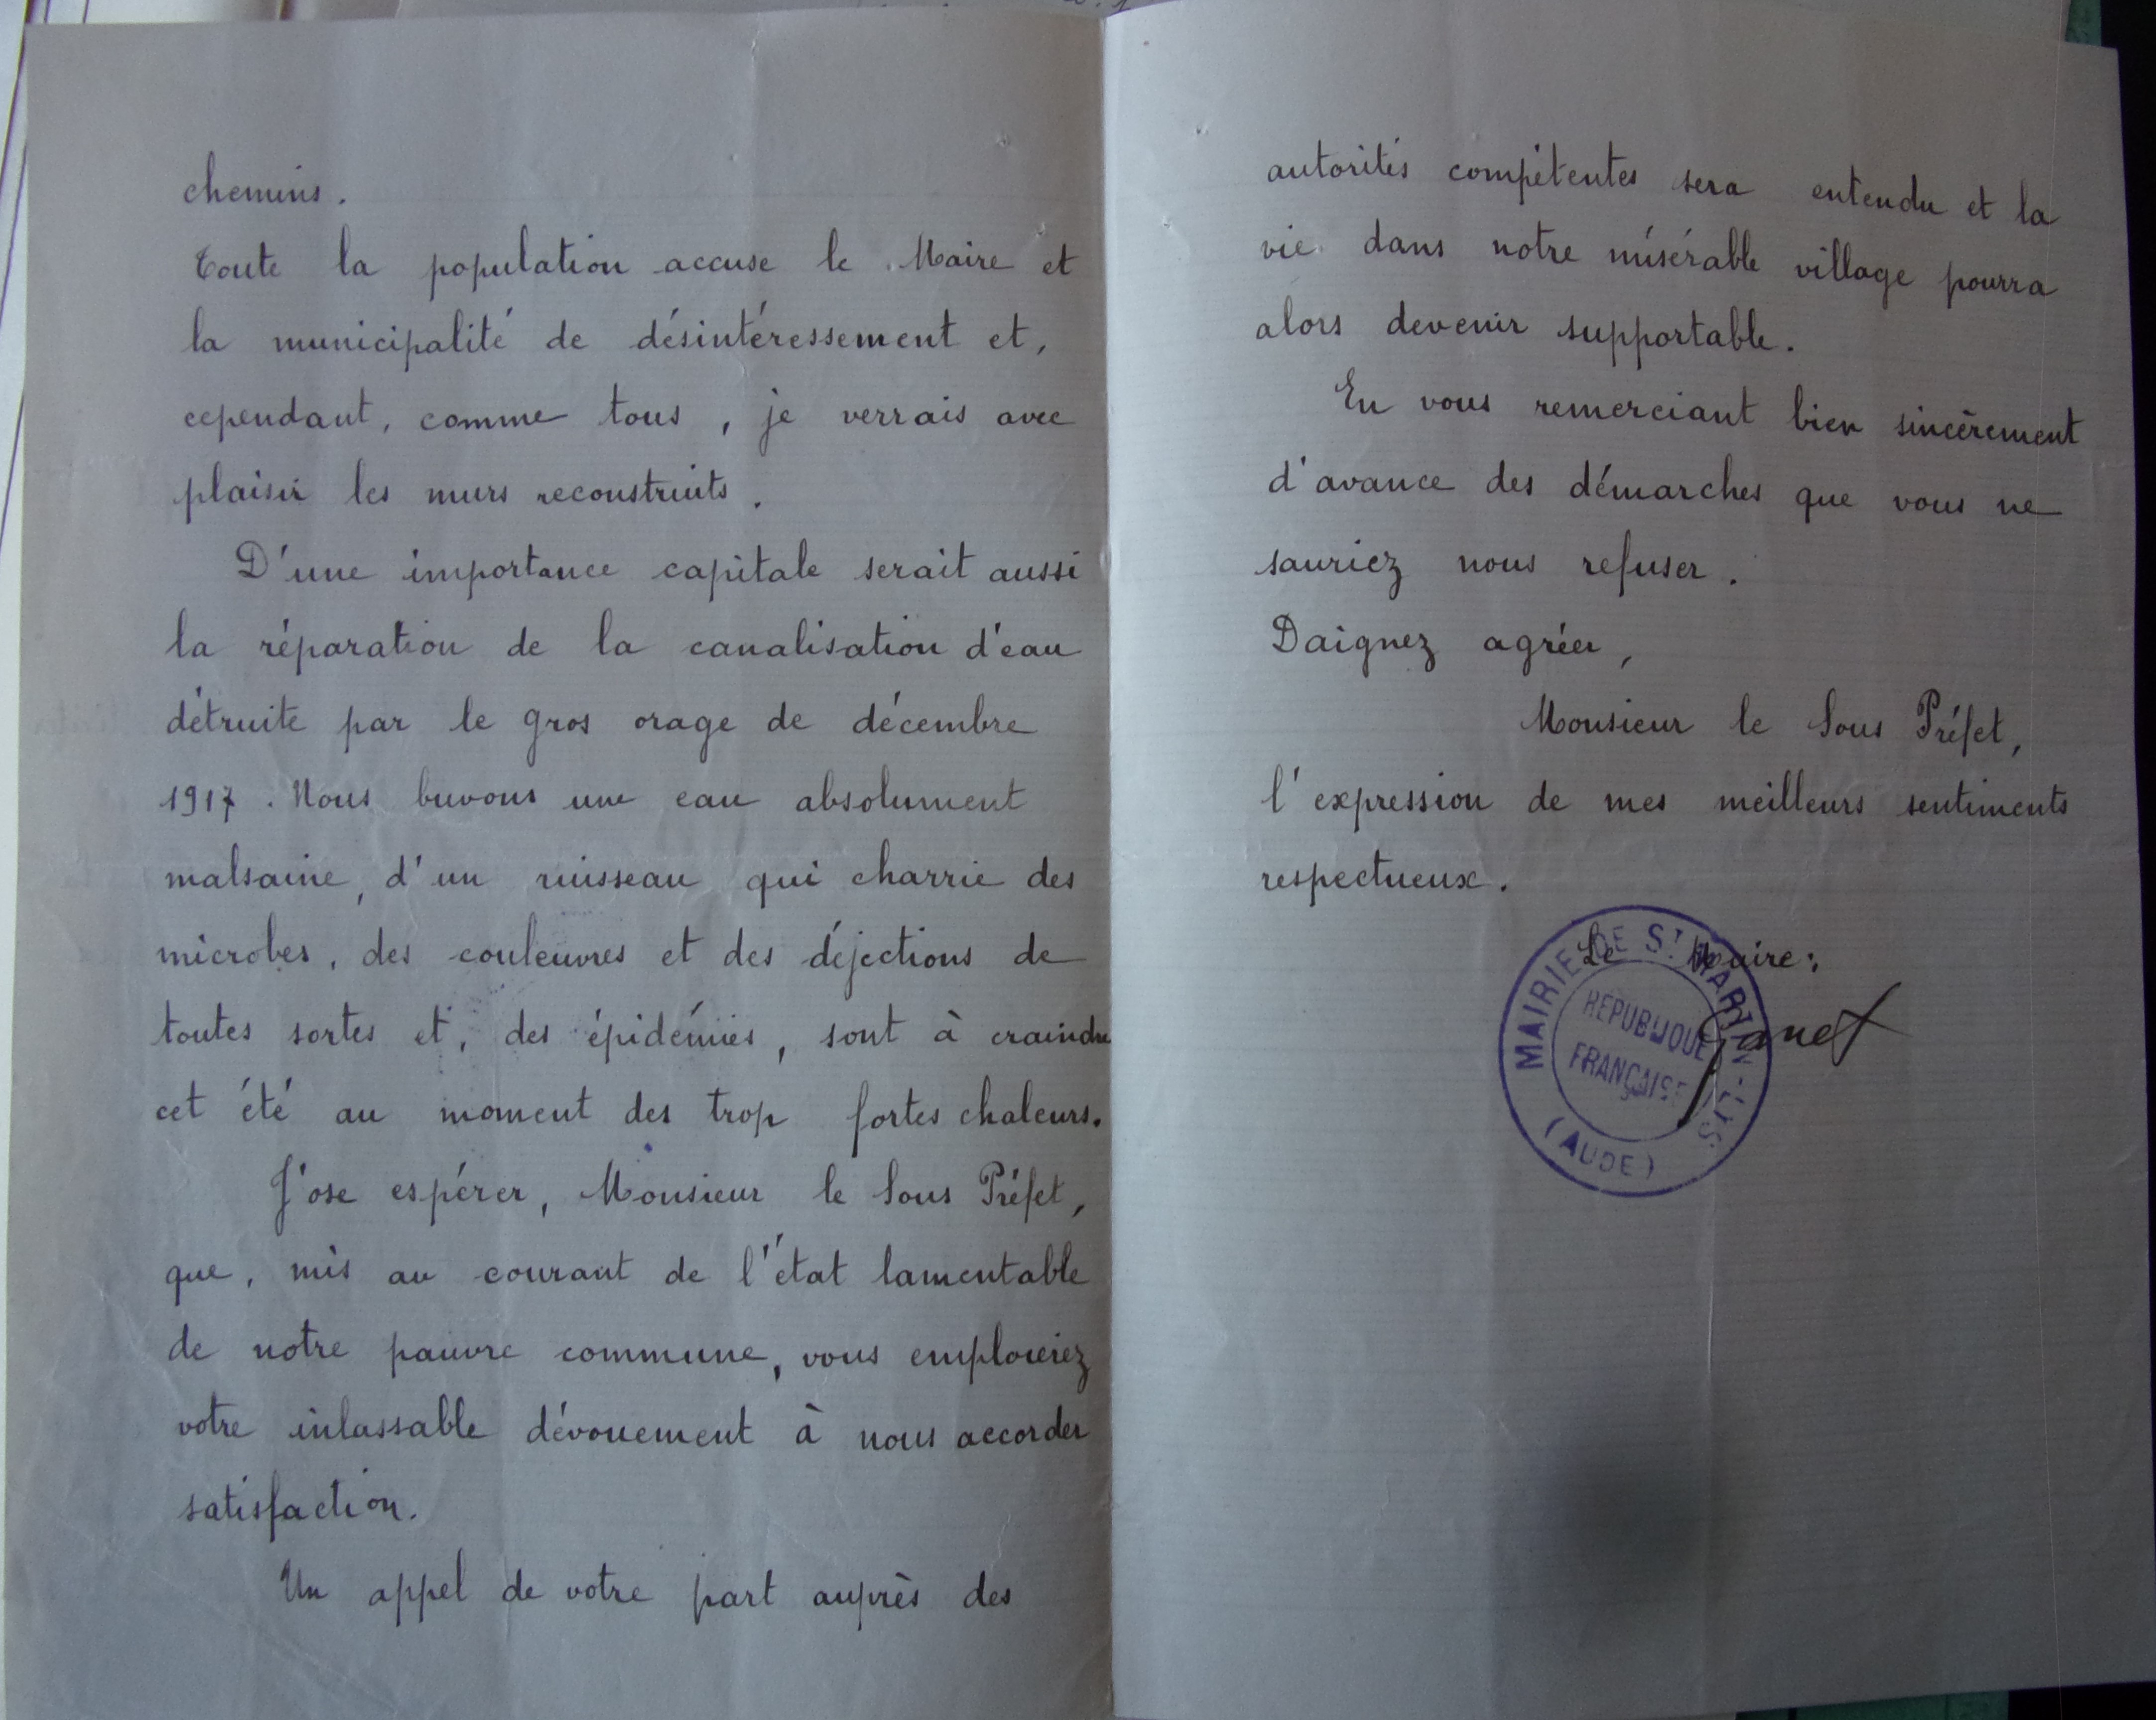 chemins.
Toute la population accuse le Maire et
la municipalité de désintéressement et,
cependant, comme tous, je verrais avec
plaisir les murs reconstruits.
D'une importance capitale serait aussi
la réparation de la canalisation d'eau
détruite par le gros orage de décembre
1917. Nous buvons une eau absolument
malsaine, d'un ruisseau qui charrie des
microbes, des couleuvres et des déjections de
toutes sortes et, des épidémies, sont à craindre
cet été au moment des trop fortes chaleurs.
J'ose espérer, Monsieur le Sous Préfet,
que, mis au courant de l'état lamentable
de notre pauvre commune, vous emploierez
votre inlassable dévouement à nous accorder
satisfaction.
Un appel de votre part auprès des
autorités compétentes sera entendu et la
vie dans notre misérable village pourra
alors devenir supportable.
En vous remerciant bien sincèrement
d'avance des démarches que vous ne
sauriez nous refuser.
Daignez agréer,
Monsieur le Sous Préfet,
l'expression de mes meilleurs sentiments
respectueux.
Le Maire:
MAIRIE DE ST MARTIN-LYS
RÉPUBLIQUE
FRANÇAISE
(AUDE)